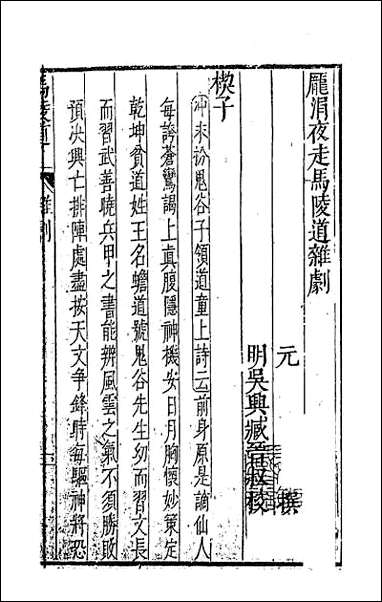 龐涓夜走馬陵道雜劇
元 撰
明吳興臧晉叔校
楔子
冲末扮鬼谷子領道童上詩云前身原是謫仙人
每誇蒼鸞謁上真腹隱神機安日月胸懷妙策定
乾坤貧道姓王名蟾道號鬼谷先生幼而習文長
而習武善曉兵甲之書能辨風雲之氣不須勝敗
預決興亡排陣處盡按天文爭鋒時每驅神將恐
雜劇